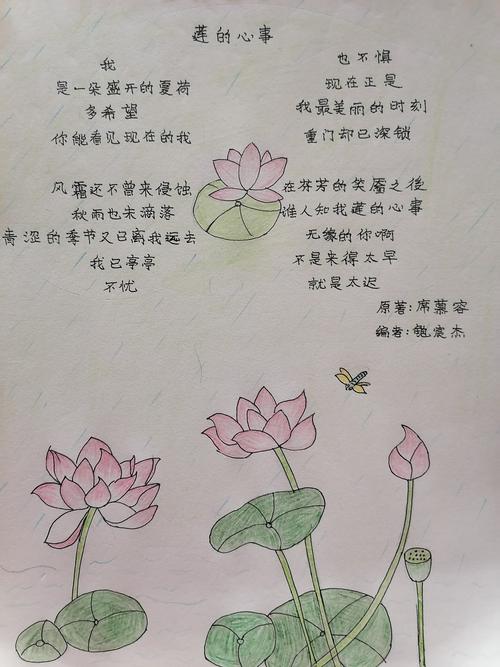 莲的心事
我
是一朵盛开的夏荷
多希望
你能看见现在的我
风霜还不曾来侵蚀
秋雨也未滴落
青涩的季节又已离我远去
我已亭亭
不忧
也不惧
现在正是
我最美丽的时刻
重门却已深锁
在芬芳的笑靥之後
谁人知我莲的心事
无缘的你啊
不是来得太早
就是太迟
原著:席慕容
编者:宸杰